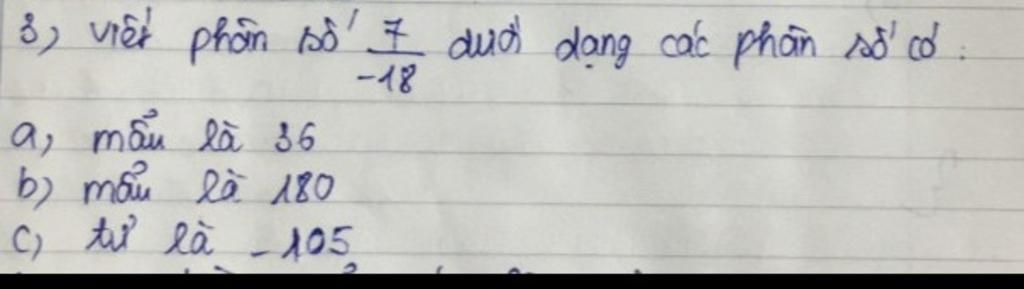 3) viết phân số 7/-18 dưới dạng các phân số có :
a) mẫu là 36
b) mẫu là 180
c) tử là -105